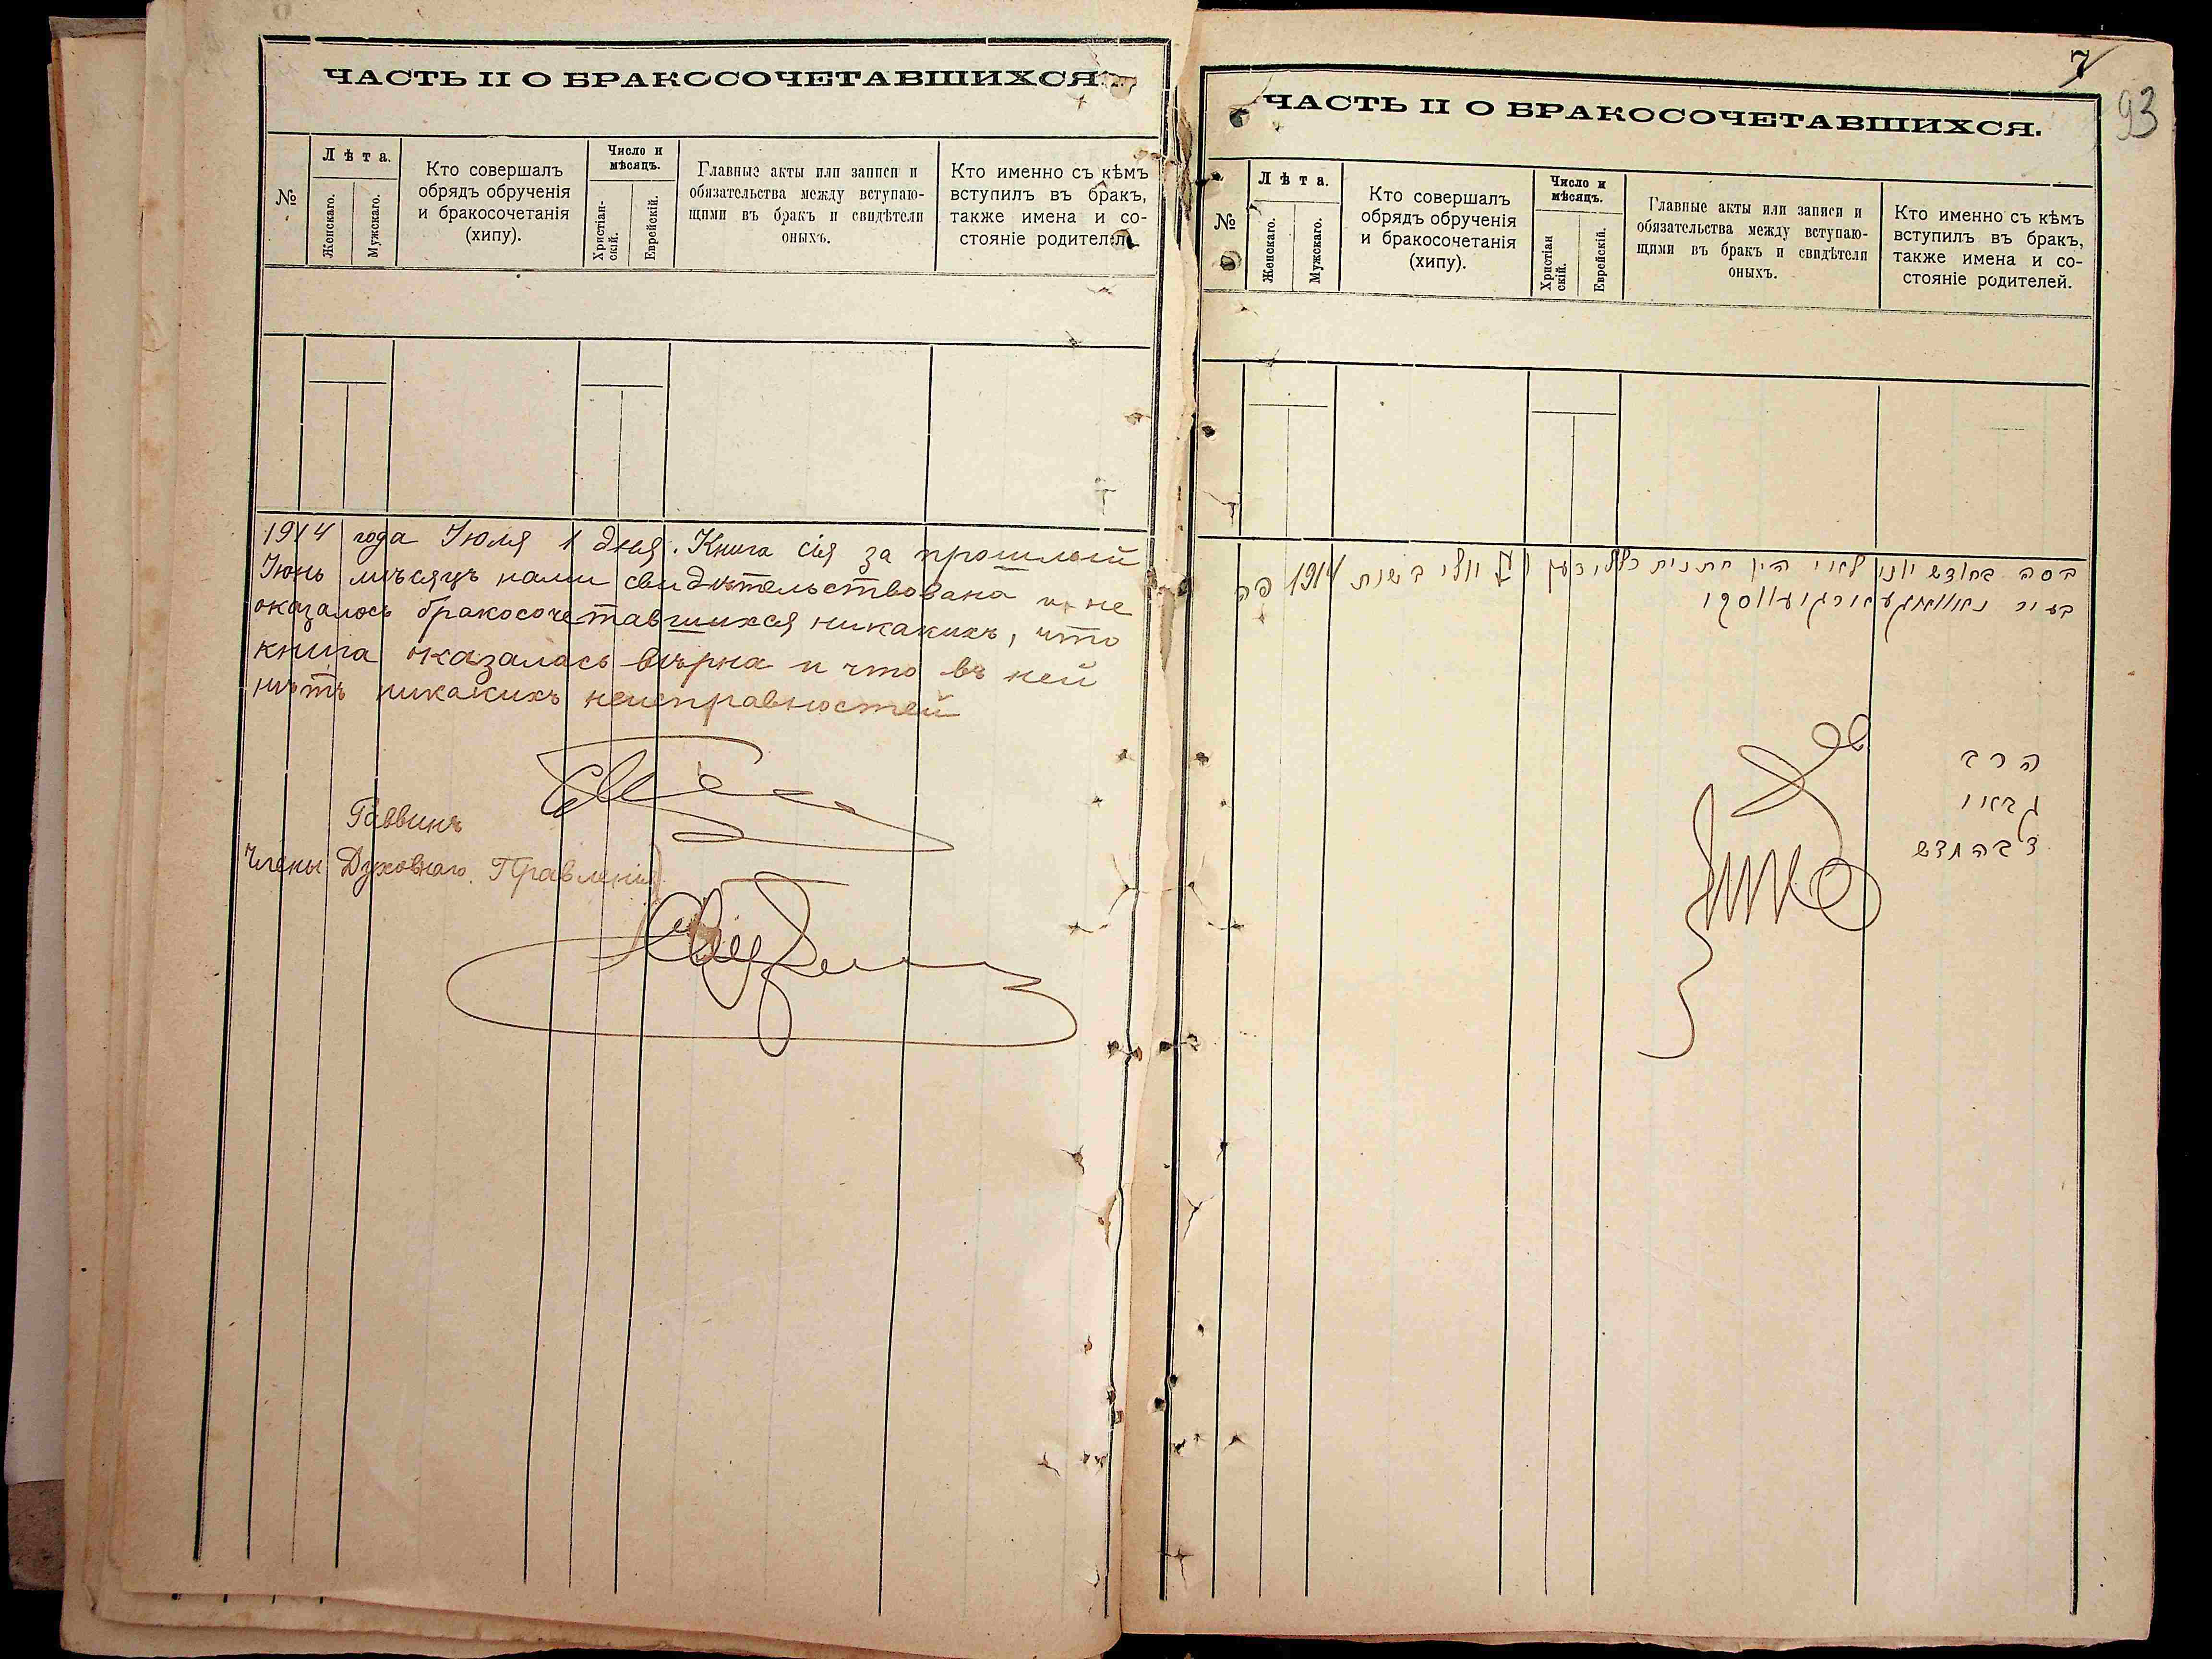 ЧАСТЬ II О БРАКОСОЧЕТАВШИХСЯ.
№
Лѣта.
Женскаго.
Мужскаго.
Кто совершалъ
обрядъ обрученія
и бракосочетанія
(хипу).
Число и
мѣсяцъ.
Христіан-
скій.
Еврейскій.
Главные акты или записи и
обязательства между вступаю-
щими въ бракъ и свидѣтели
оныхъ.
Кто именно съ кѣмъ
вступилъ въ бракъ,
также имена и со-
стояніе родителей.
1914 года Іюля 1 дня. Книга сія за прошлый
Іюнь мѣсяцъ нами свидѣтельствована и не
оказалось бракосочетавшихся никакихъ, что
книга оказалась вѣрна и что въ ней
нѣтъ никакихъ неисправностей
Раввинъ
Члены Духовнаго Правленія
7
93
ЧАСТЬ II О БРАКОСОЧЕТАВШИХСЯ.
№
Лѣта.
Женскаго.
Мужскаго.
Кто совершалъ
обрядъ обрученія
и бракосочетанія
(хипу).
Число и
мѣсяцъ.
Христіан
скій.
Еврейскій.
Главные акты или записи и
обязательства между вступаю-
щими въ бракъ и свидѣтели
оныхъ.
Кто именно съ кѣмъ
вступилъ въ бракъ,
также имена и со-
стояніе родителей.
בחודש יוני יולי בשנת 1914 פה
בעיר
הרב
גבאי